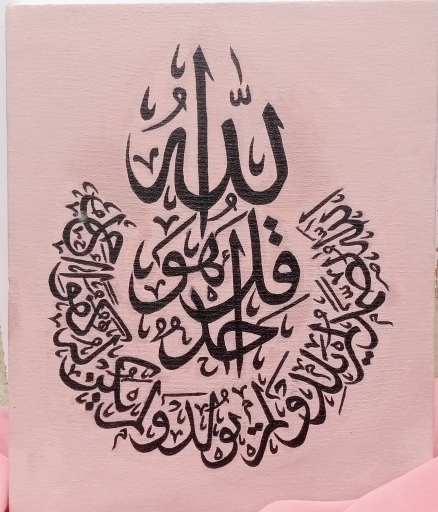 قل هو الله أحد
الله الصمد لم يلد ولم يولد ولم يكن له كفوا أحد